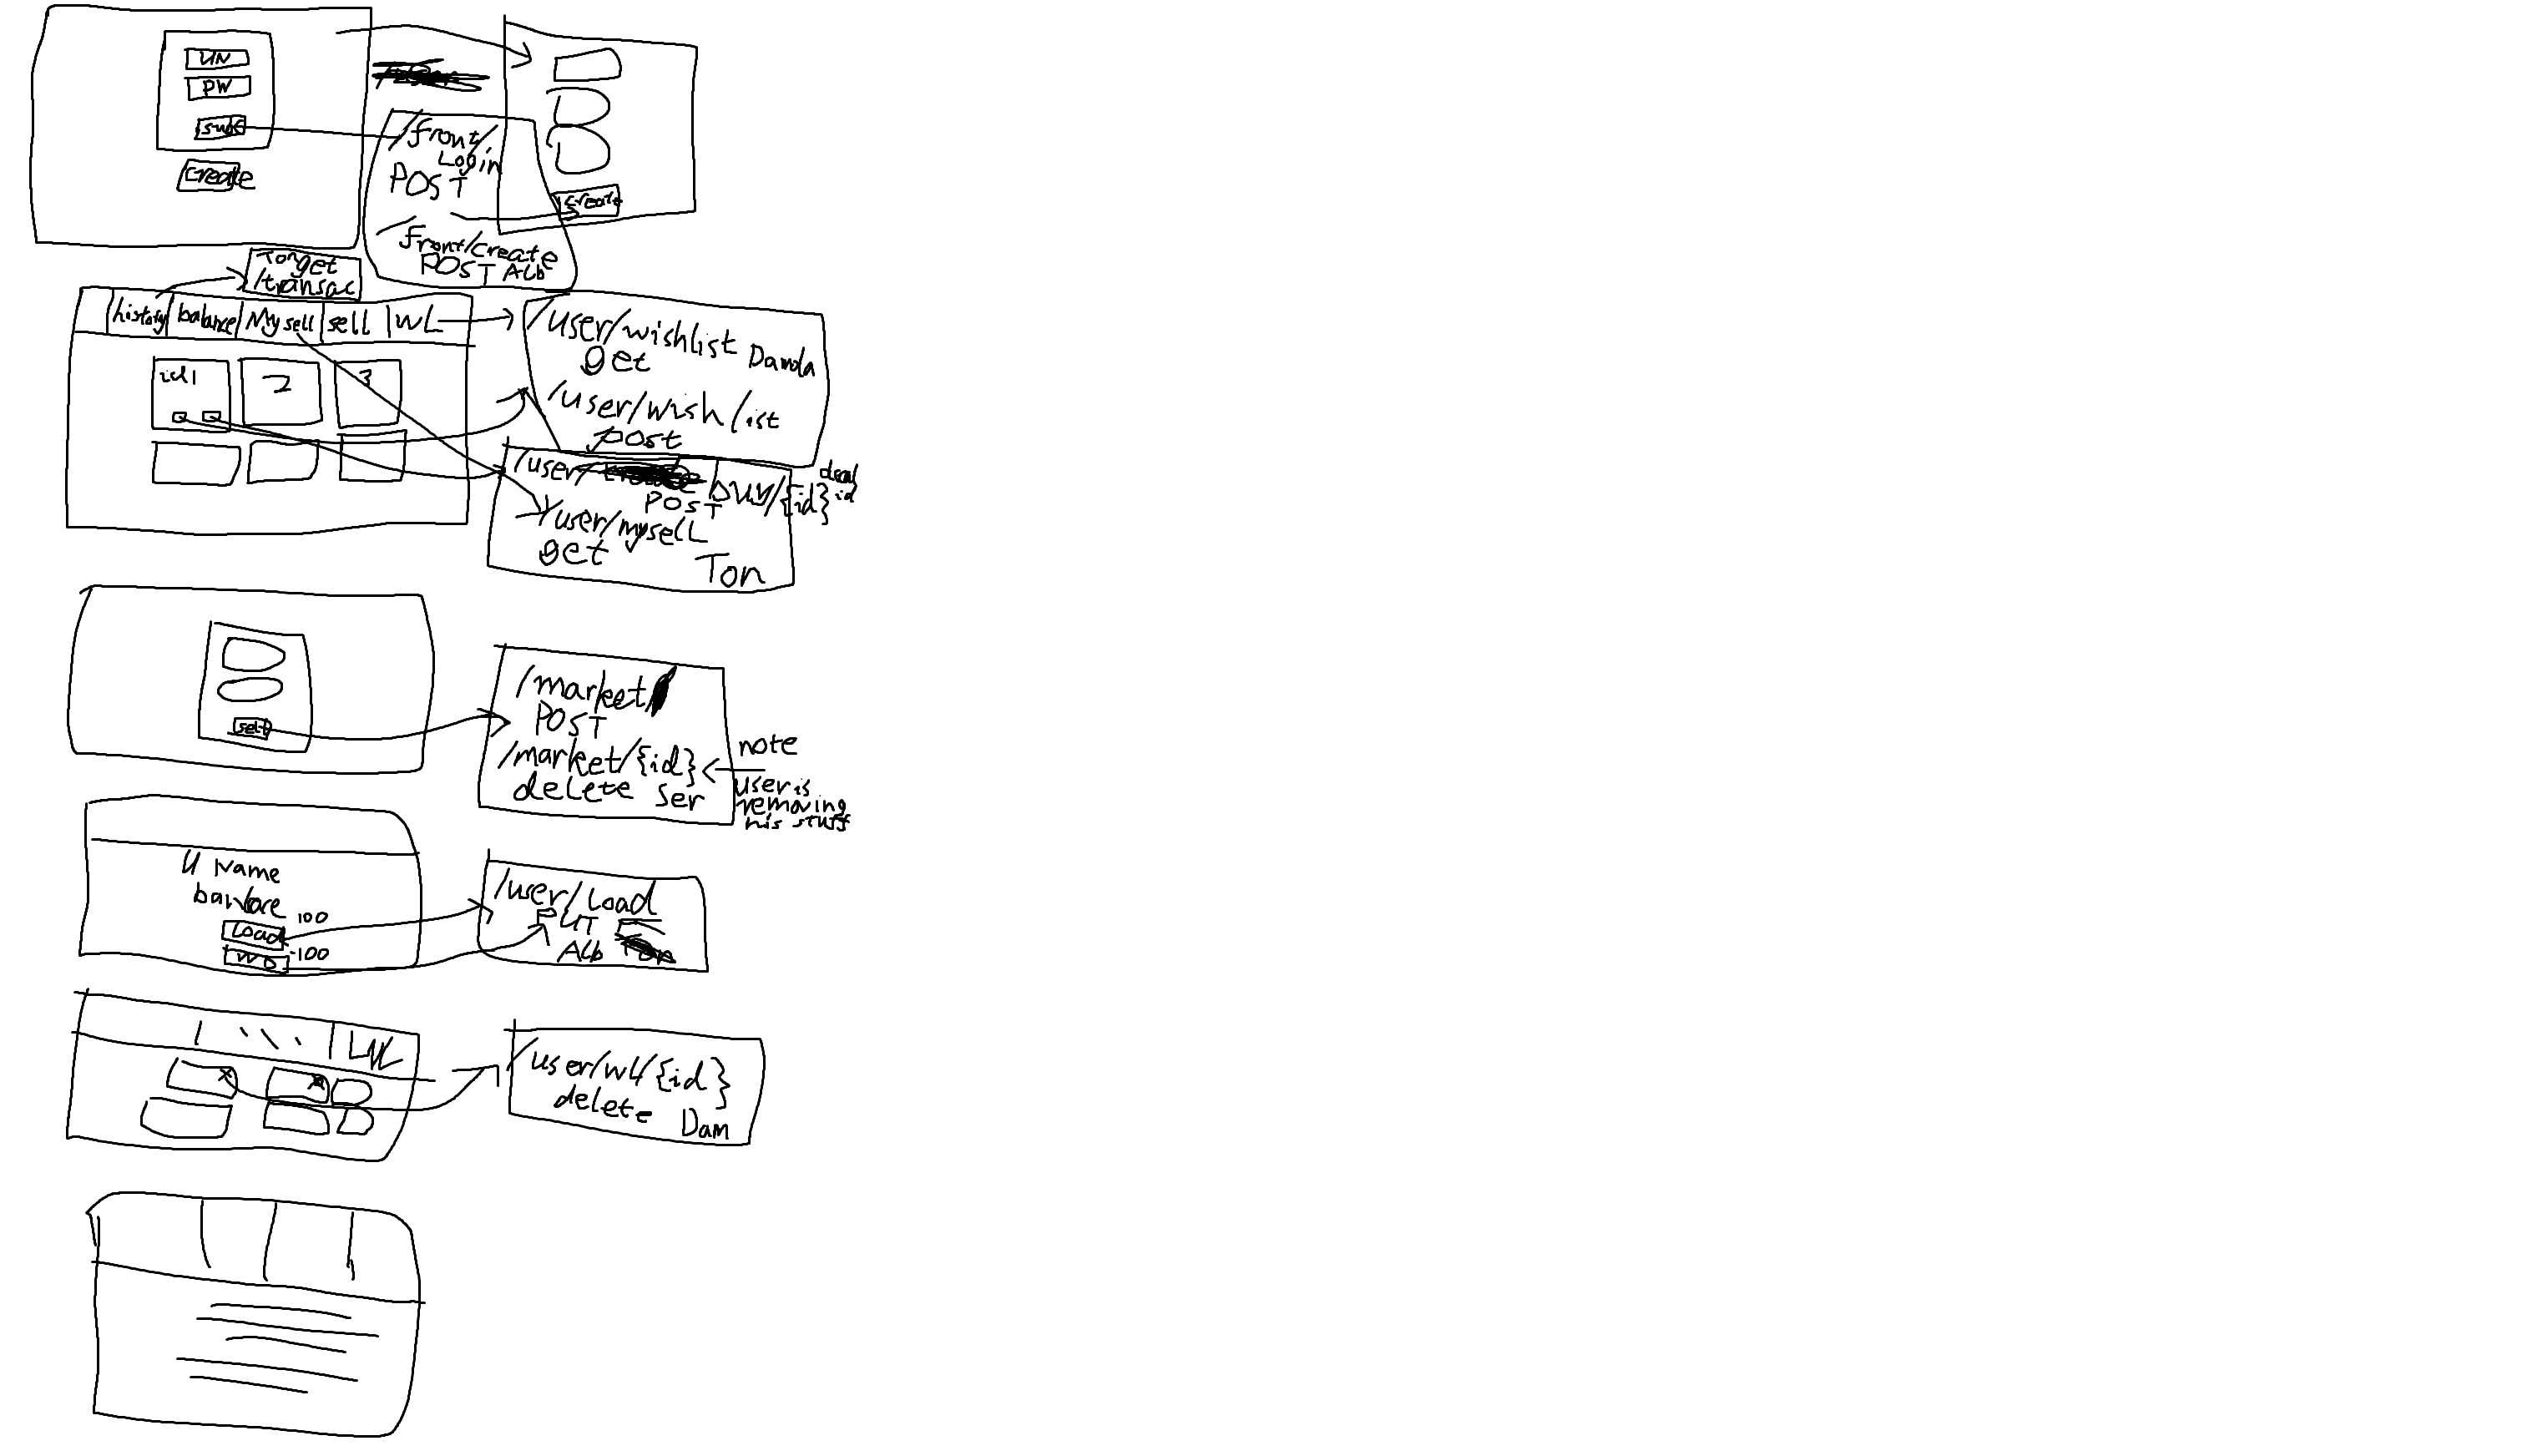 UN
PW
sub
create
/front/
Login
POST
create
/front/create
POST Alb
Ton get
/transac
history balance My sell sell WL
/user/wishlist Damda
get
/user/wishlist
post
id1 2 3
/user/ buy/{id} deal id
POST
/user/mysell
get
Ton
sell
/market
POST
/market/{id}
delete Ser
note
user is
removing
his stuff
U Name
load 100
WD -100
/user/Load
PUT
Alb
WL
/user/wl/{id}
delete Dam